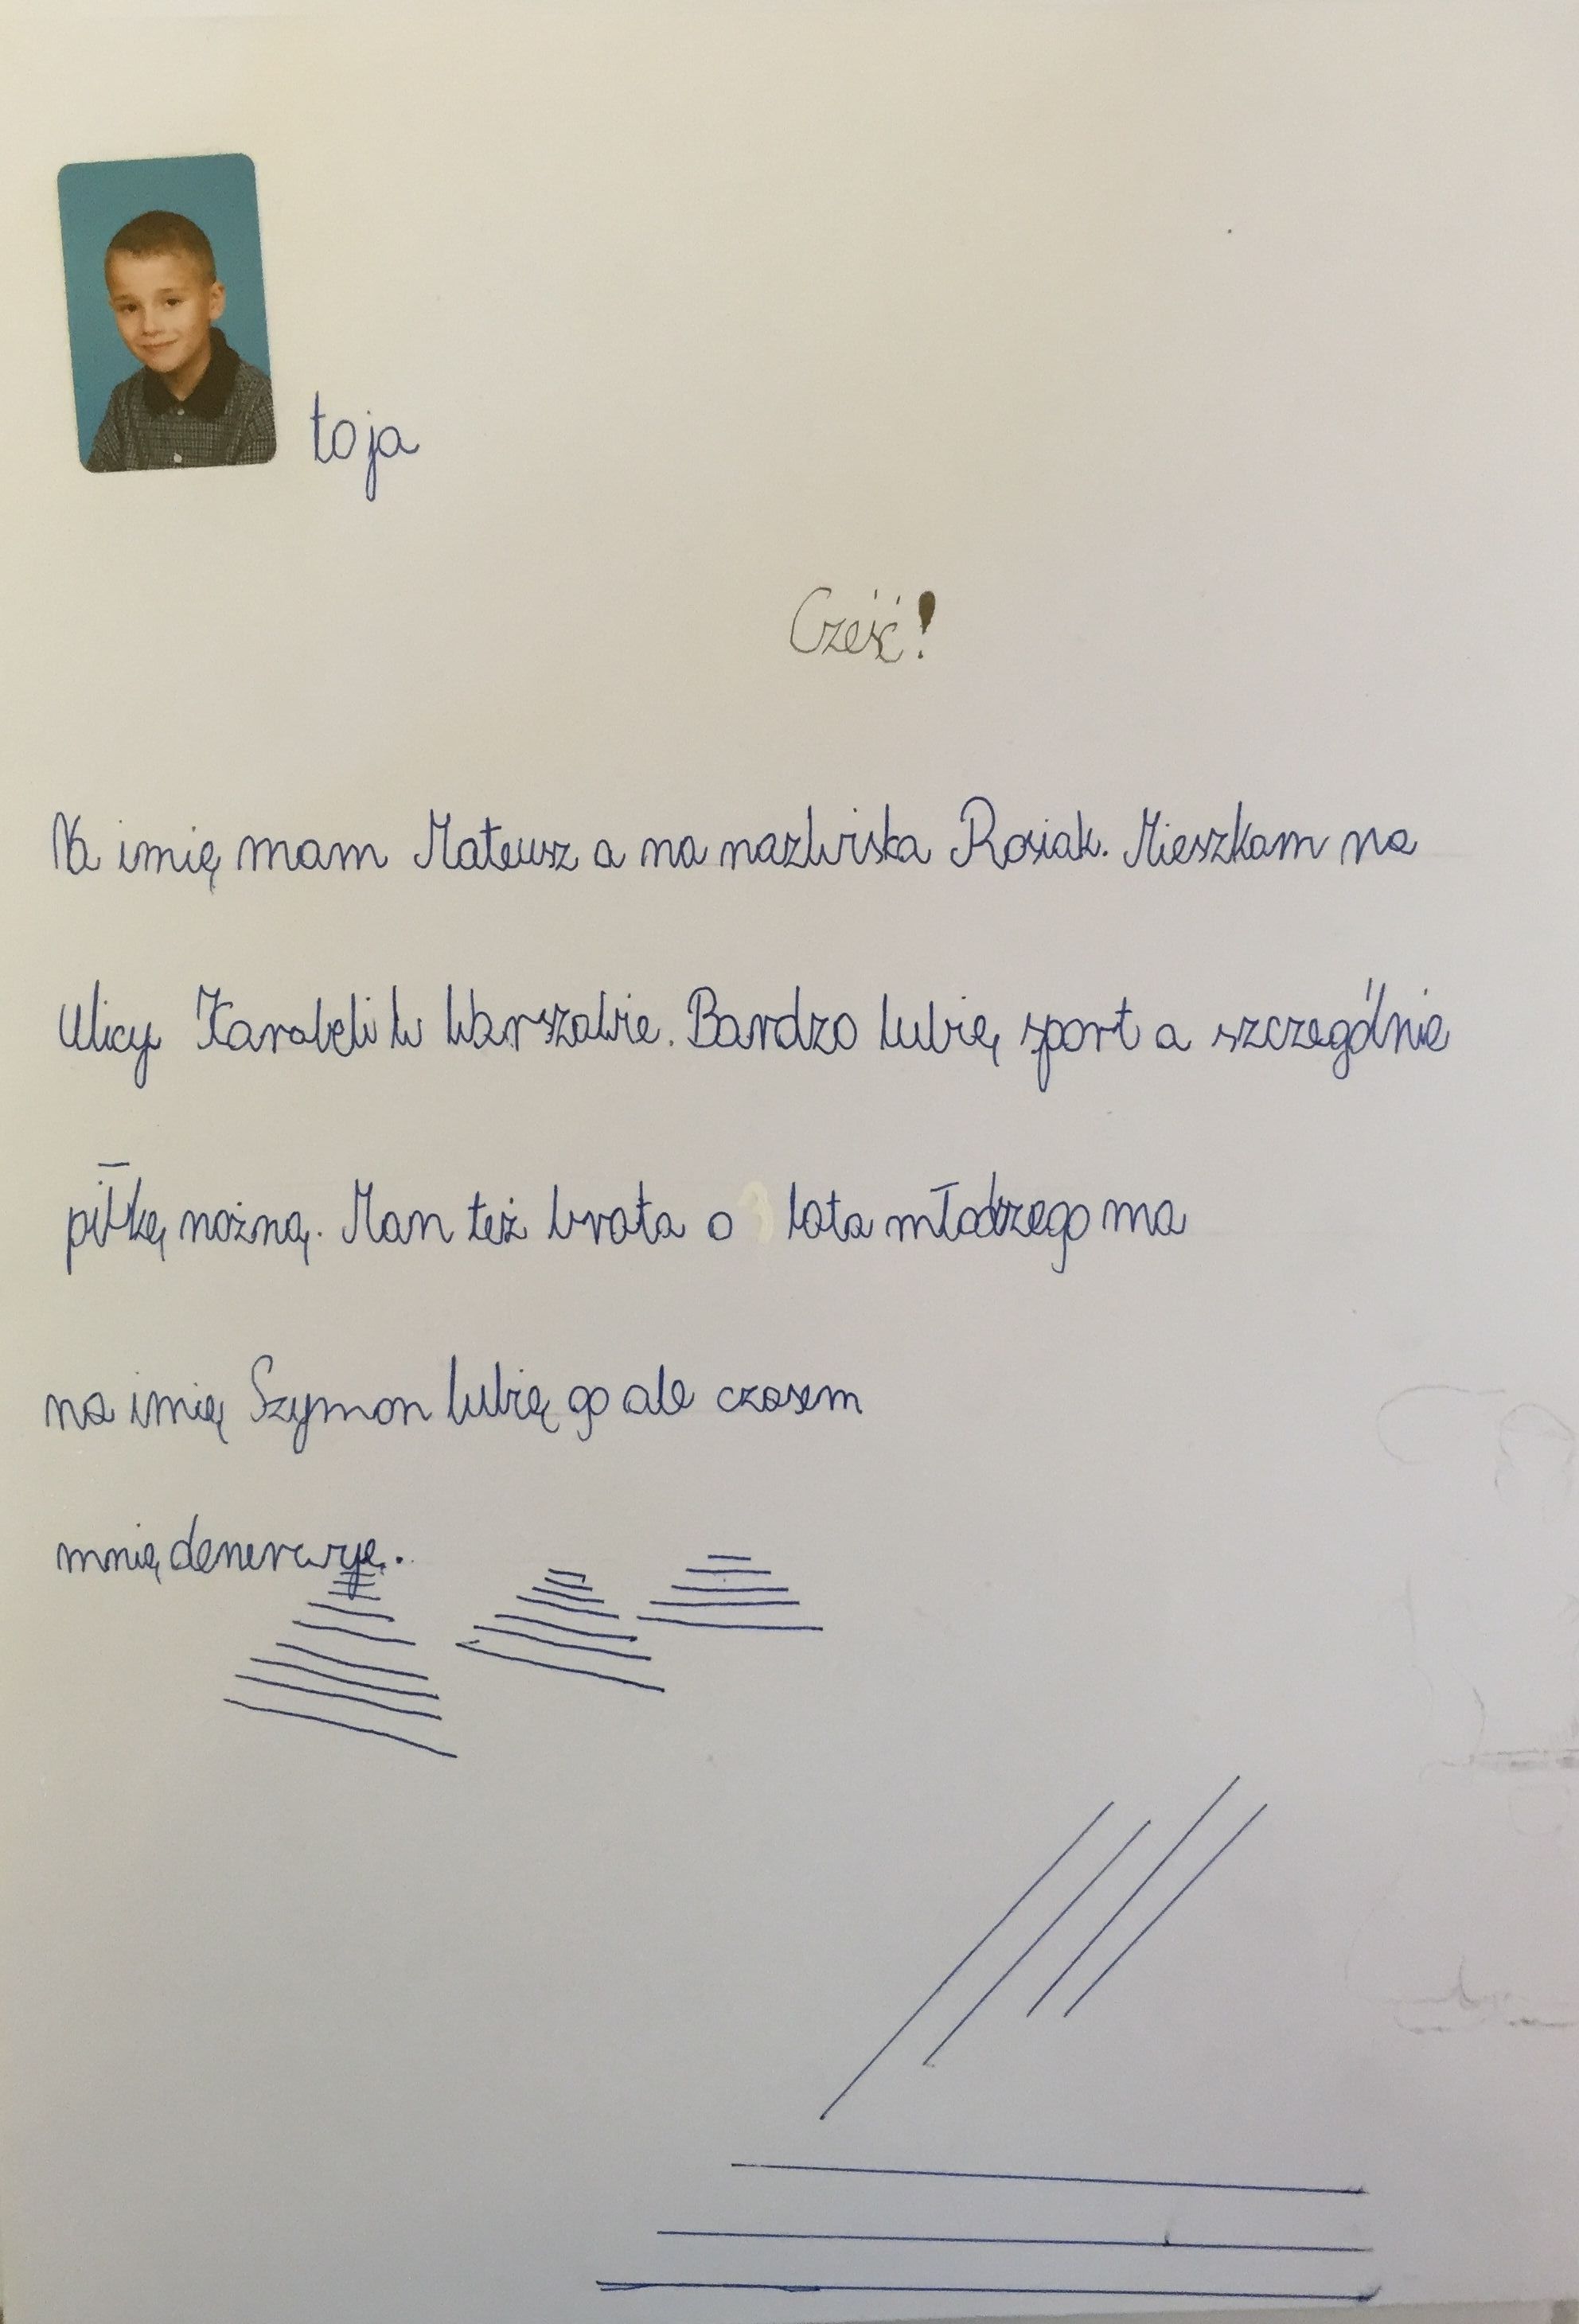 to ja
Cześć!
Na imię mam Mateusz a na nazwiska Rosiak. Mieszkam na
ulicy Karabeli w Warszawie. Bardzo lubię sport a szczególnie
piłkę nożną. Mam też brata o 3 lata młodzego ma
na imię Szymon lubię go ale czasem
mnię denerwuję.